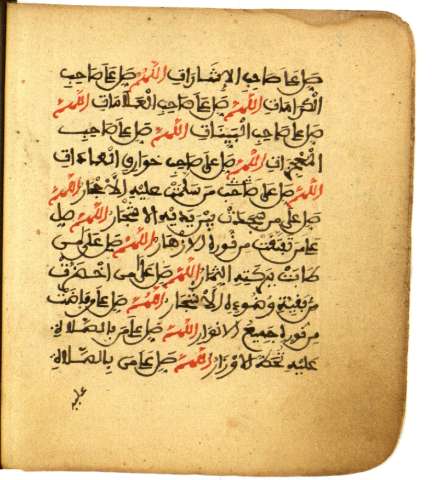 صل على صاحب الإشارات اللهم صل على صاحب
الكرامات اللهم صل على صاحب العلامات اللهم
صل على صاحب البينات اللهم صل على صاحب
المعجزات اللهم صل على صاحب خوارق العادات
اللهم صل على من سلمت عليه الأحجار اللهم
صل على من سجدت بين يديه الأشجار اللهم صل
على من تفتقت من نوره الأزهار اللهم صل على من
طابت ببركته الثمار اللهم صل على من اخضرت
من بقية وضوءه الأشجار اللهم صل على من فاضت
من نوره جميع الأنوار اللهم صل على من بالصلاة
عليه تحط الأوزار اللهم صل على من بالصلاة
عليه